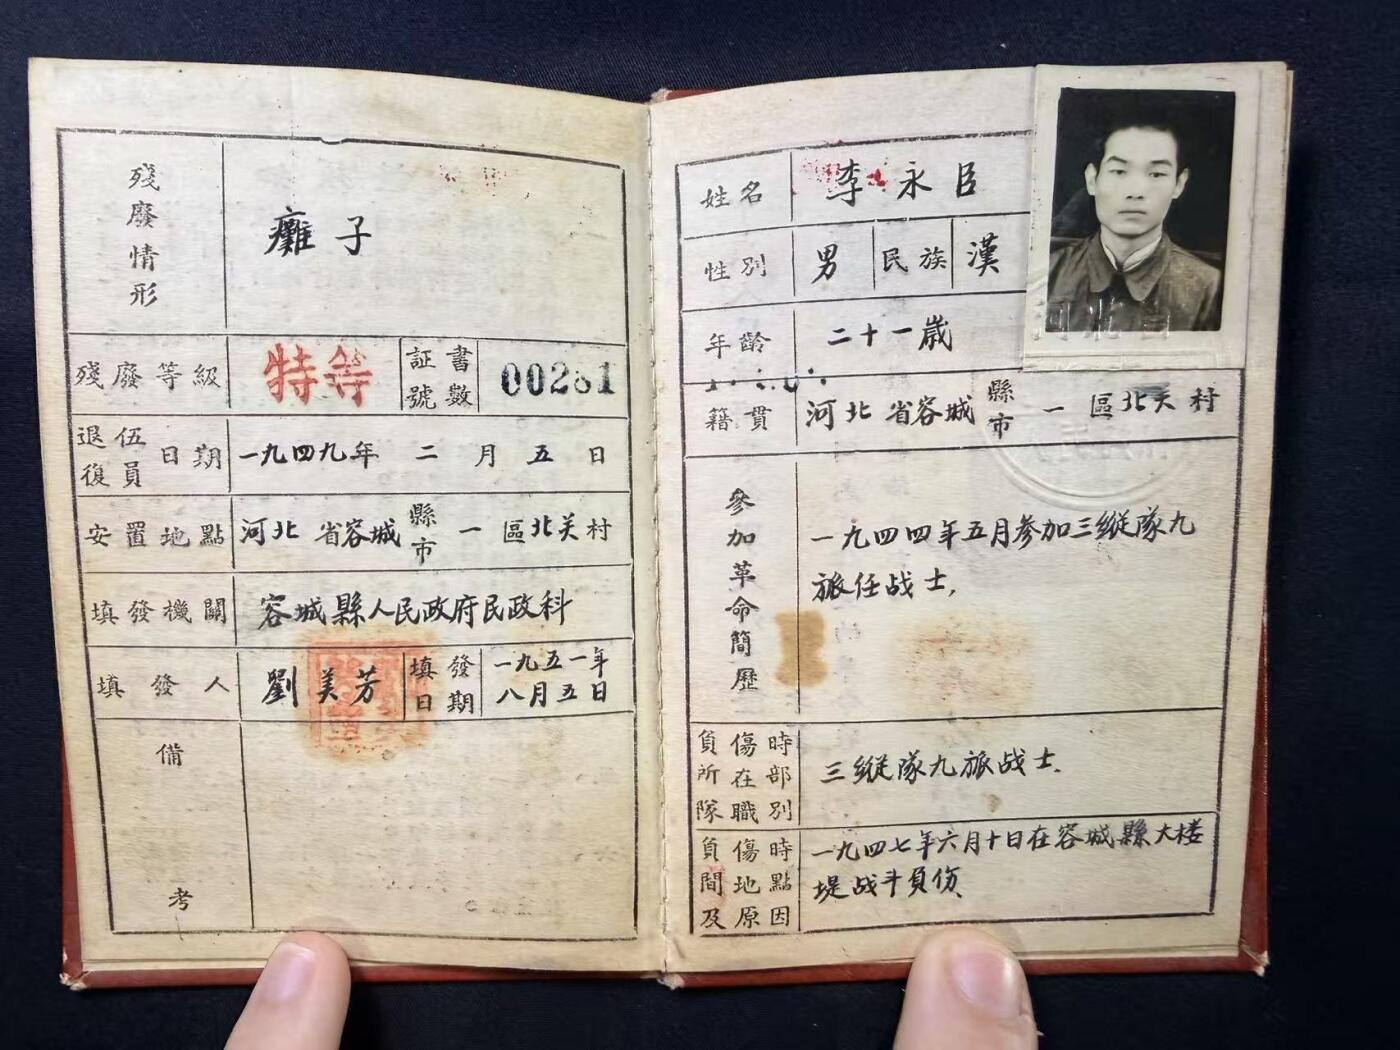 殘廢情形
癱子
殘廢等級
特等
証書號數
00281
退伍復員日期
一九四九年 二 月 五 日
安置地點
河北 省容城 縣市 一 區北关村
填發機關
容城縣人民政府民政科
填發人
劉美芳
填發日期
一九五一年
八月五日
備考
姓名
李永臣
性別
男
民族
漢
年齡
二十一歲
籍貫
河北 省容城 縣市 一 區北关村
參加革命簡歷
一九四四年五月参加三縱隊九
旅任战士,
負傷時
所在部
隊職別
三縱隊九旅战士.
負傷時
間地點
及原因
一九四七年六月十日在容城縣大楼
堤战斗負伤.